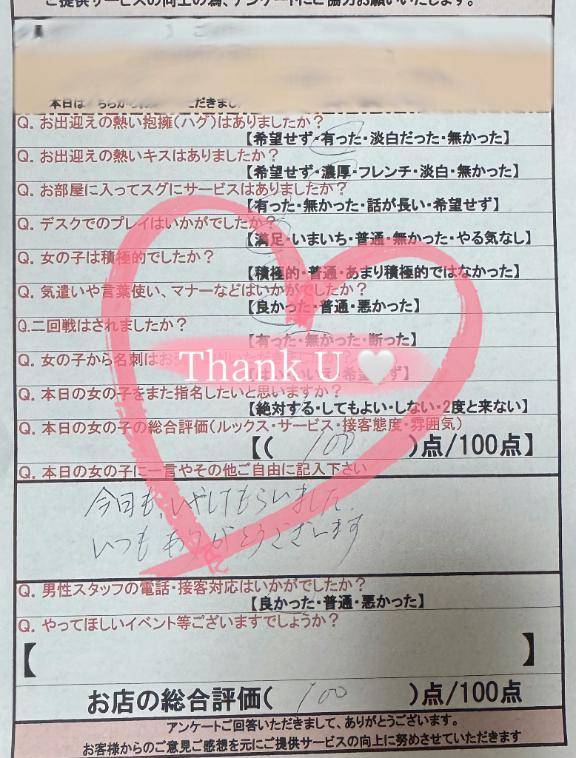 ご提供サービスの向上の為、アンケートにご協力お願いいたします。
本日は
Q. お出迎えの熱い抱擁(ハグ)はありましたか?
【希望せず・有った・淡白だった・無かった】
Q. お出迎えの熱いキスはありましたか?
【希望せず・濃厚・フレンチ・淡白・無かった】
Q. お部屋に入ってスグにサービスはありましたか?
【有った・無かった・話が長い・希望せず】
Q. デスクでのプレイはいかがでしたか?
【満足・いまいち・普通・無かった・やる気なし】
Q. 女の子は積極的でしたか?
【積極的・普通・あまり積極的ではなかった】
Q. 気遣いや言葉使い、マナーなどはいかがでしたか?
【良かった・普通・悪かった】
Q.二回戦はされましたか?
【有った・無かった・断った】
Q. 女の子から名刺はお
Thank U
Q. 本日の女の子をまた指名したいと思いますか?
【絶対する・してもよい・しない・2度と来ない】
Q. 本日の女の子の総合評価(ルックス・サービス・接客態度・雰囲気)
【( 100 )点/100点】
Q. 本日の女の子に一言やその他ご自由に記入下さい
今日も、いやしてもらいました。
いつもありがとうございます
Q. 男性スタッフの電話・接客対応はいかがでしたか?
【良かった・普通・悪かった】
Q. やってほしいイベント等ございますでしょうか?
【 】
お店の総合評価( 100 )点/100点
アンケートご回答いただきまして、ありがとうございます。
お客様からのご意見ご感想を元にご提供サービスの向上に努めさせていただきます